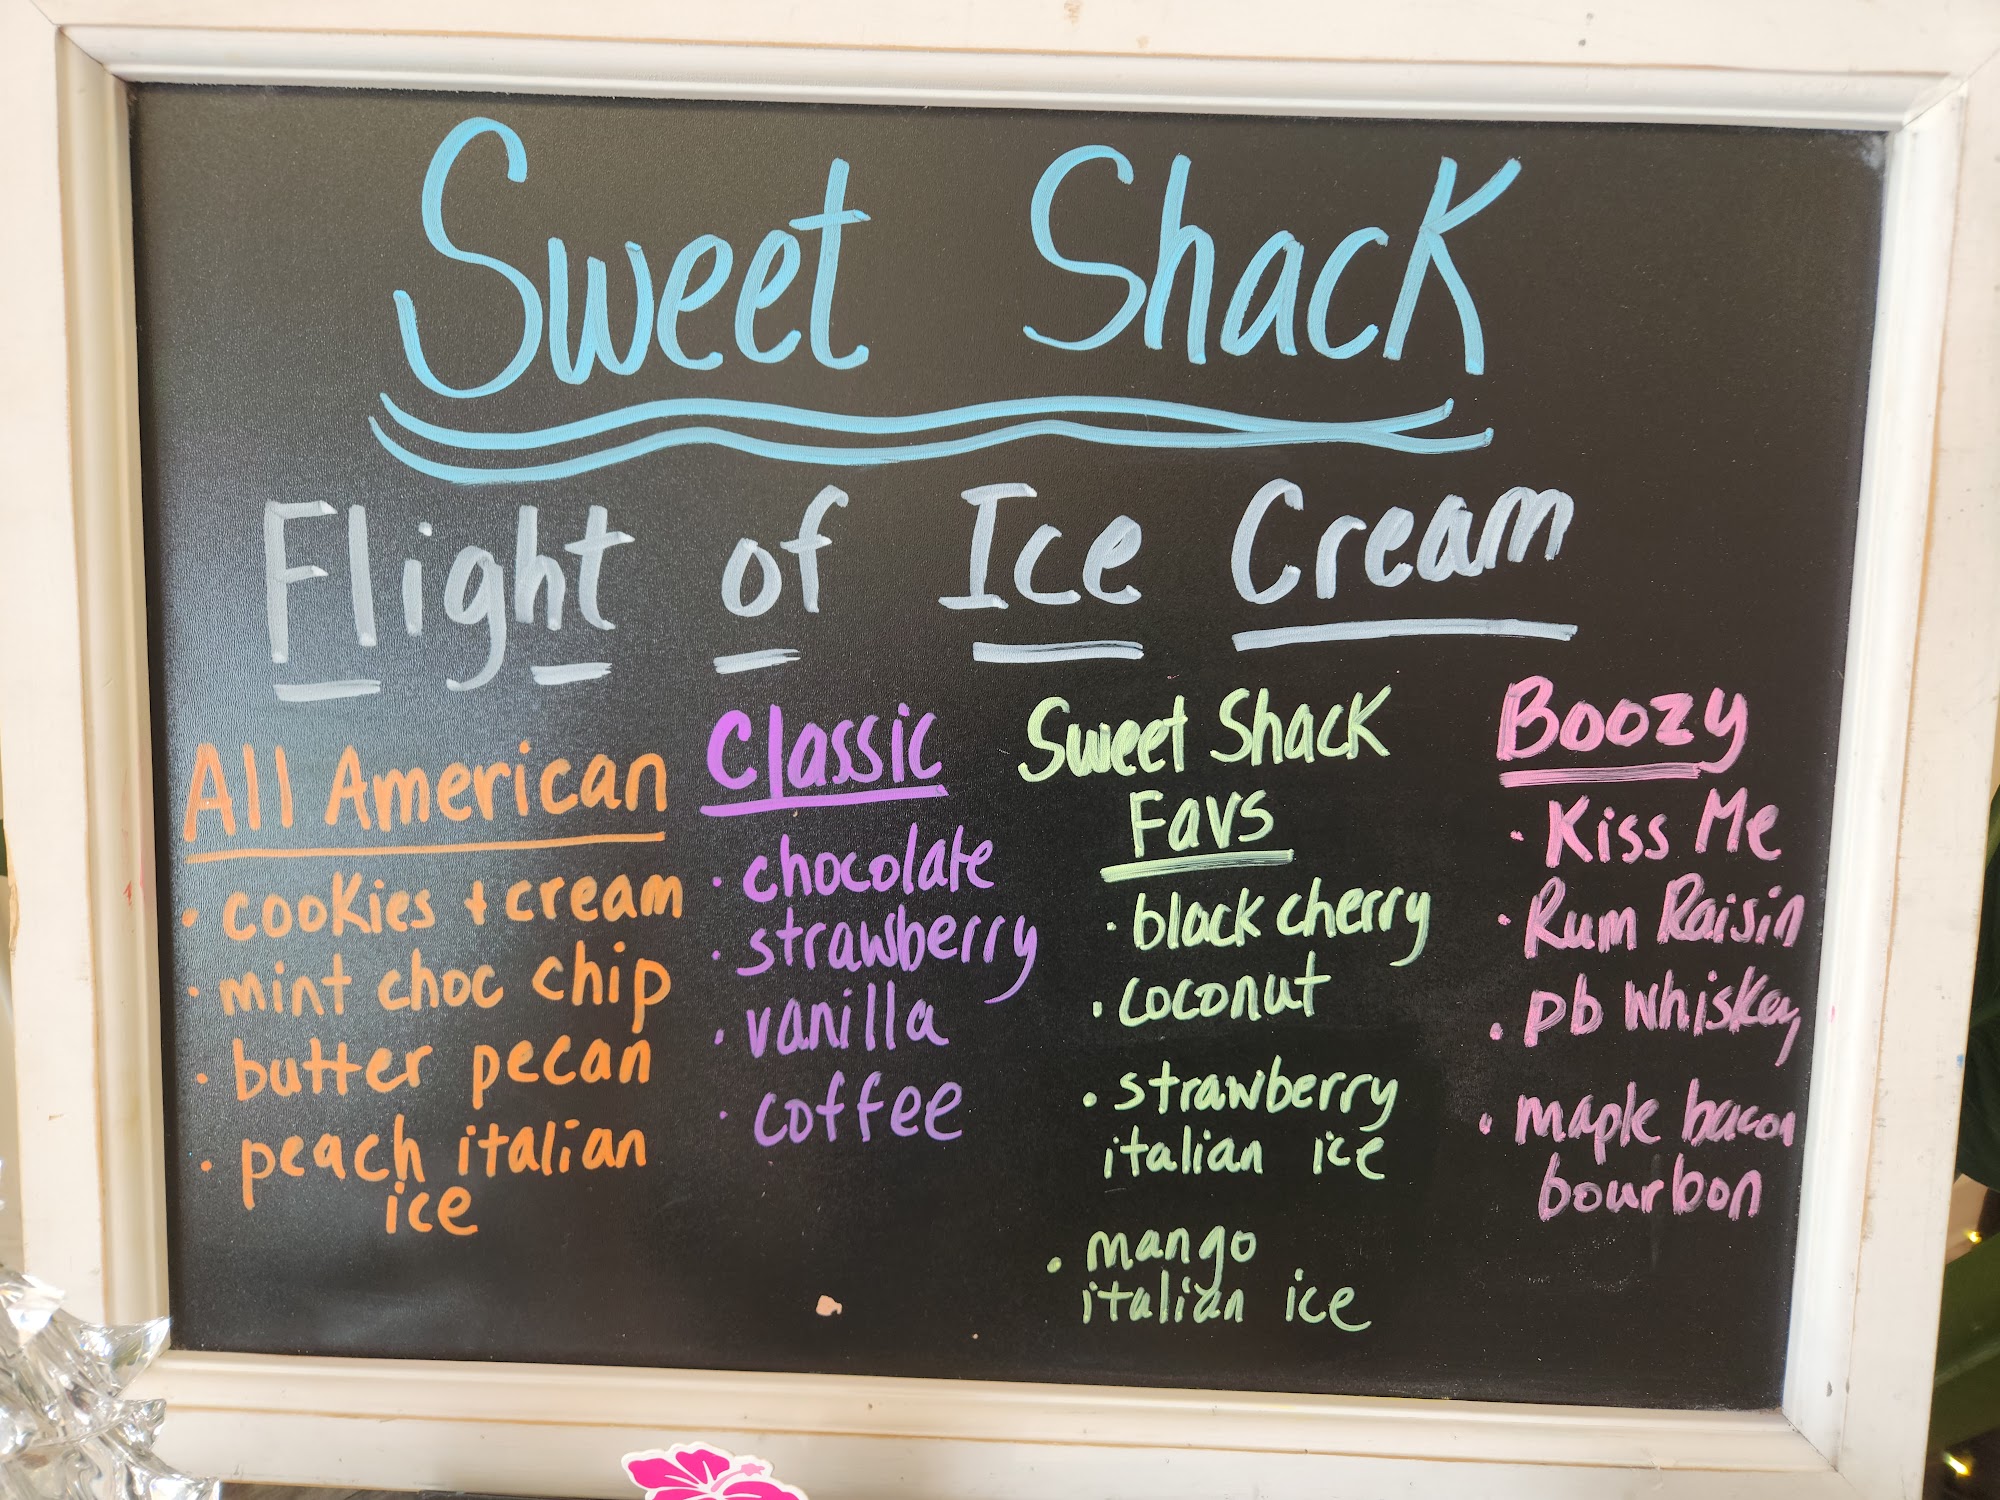 Sweet Shack
Flight of Ice Cream
All American
• cookies + cream
• mint choc chip
• butter pecan
• peach italian
ice
Classic
• chocolate
• strawberry
• vanilla
• coffee
Sweet Shack
Favs
• black cherry
• coconut
• strawberry
italian ice
• mango
italian ice
Boozy
• Kiss Me
• Rum Raisin
• pb whiskey
• maple bacon
bourbon